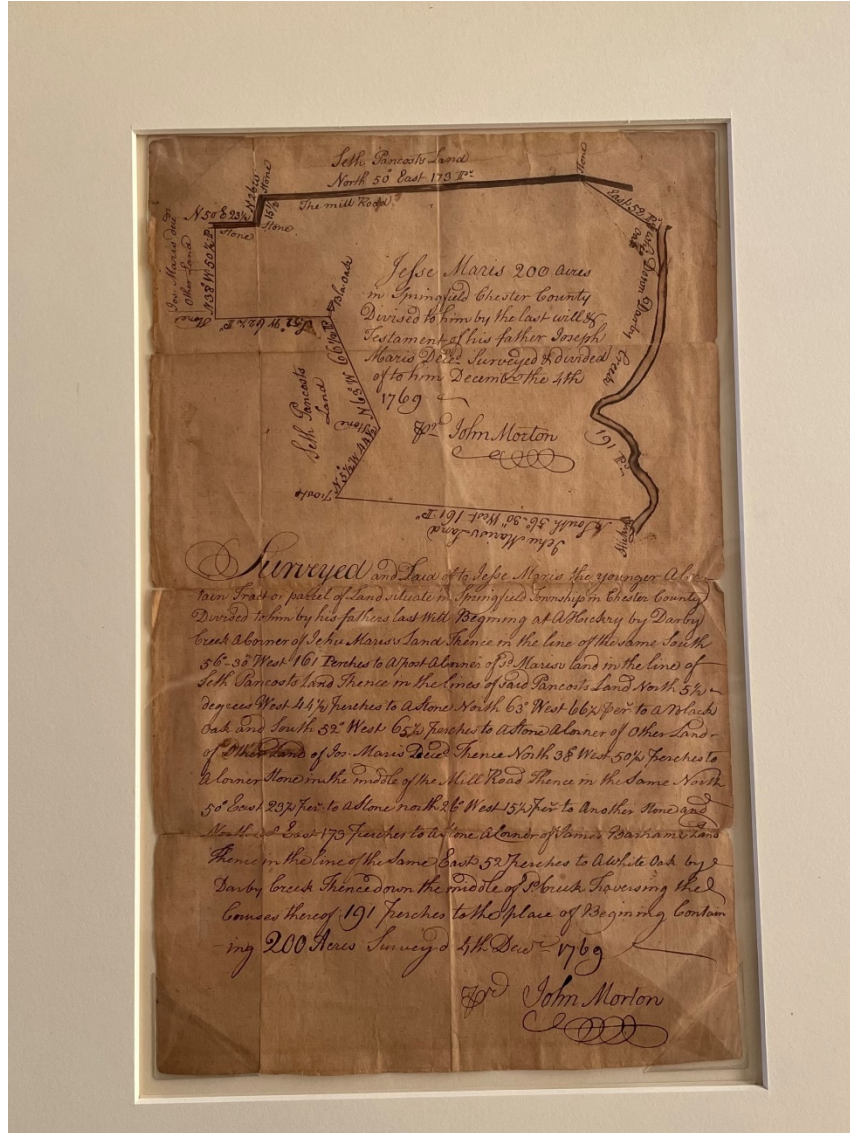 Seth Pancosts Land
North 50° East 173 Pr
The mill Road
Stone
East 52 Pr
White Oak
N 50 E 23½
Stone
N 26 W
15½
Stone
Stone
Jos Maris dec'd
Other Land
N 38° W 50½ P
Stone
S 52° W 65½ Pr
Bla: Oak
N 63° W 66½ Pr
Stone
Seth Pancosts
Land
N 5½ W 44½
Post
Down Darby Creek
161
Jehu Maris's Land
South 56°-30' West 161 Pr
Jesse Maris 200 acres
in Springfield Chester County
Divised to him by the last will &
Testament of his father Joseph
Maris Decd Surveyed & divided
of to him Decembr the 4th
1769
John Morton
Surveyed and Laid of to Jesse Maris the younger A Cer-
tain Tract or parcel of Land situate in Springfield Township in Chester County
Divised to him by his fathers last Will Begining at A Hickry by Darby
Creek A Corner of Jehu Maris's Land Thence in the line of the same South
56°-30' West 161 Perches to A post A Corner of Sd Maris's land in the line of
Seth Pancosts Land Thence in the lines of said Pancosts Land North 5½
degrees West 44½ perches to A Stone North 63° West 66½ per to a Black
Oak and South 52° West 65½ perches to A Stone A Corner of Other Land
of Other Land of Jos. Maris Decd Thence North 38 West 50½ perches to
A Corner Stone in the middle of the Mill Road Thence in the Same North
50° East 23½ per to a Stone north 26° West 15½ per to Another Stone and
North East 173 perches to A Stone A Corner of James Barhams Land
Thence in the line of the Same East 52 perches to A White Oak by
Darby Creek Thence down the middle of Sd Creek Traversing the
Courses thereof 191 perches to the place of Begining Contain
ing 200 Acres Survey'd 4th Decr 1769
John Morton